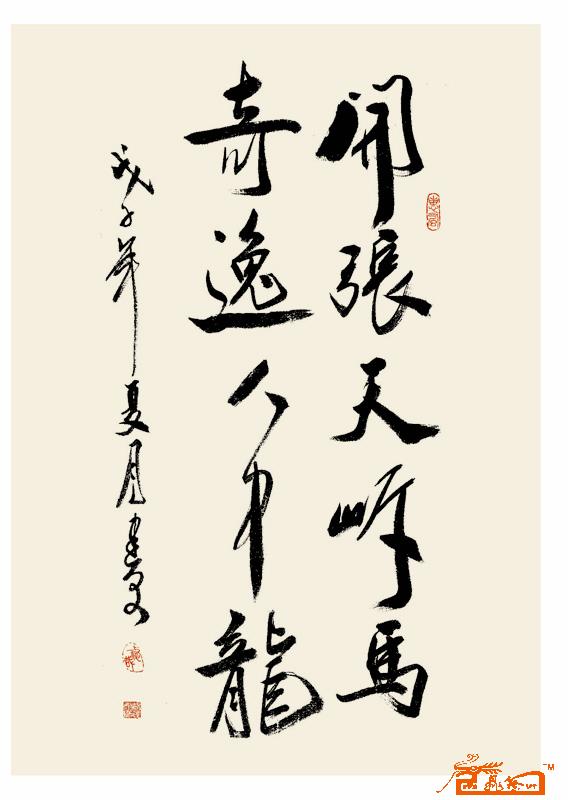 開張天岸馬
奇逸人中龍
戊子年夏月